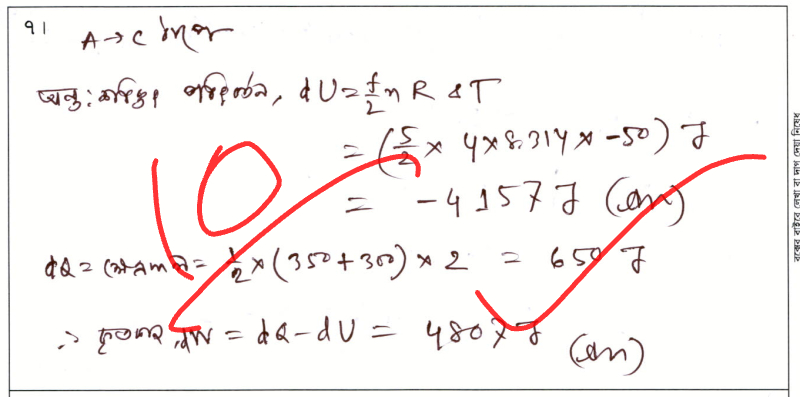 ৭।
A → C ধাপে
অন্তঃশক্তির পরিবর্তন, dU = f/2 n R ΔT
= (5/2 × 4 × 8.314 × -50) J
= -4157 J (Ans)
dQ = ক্ষেত্রফল = 1/2 × (350 + 300) × 2 = 650 J
∴ কৃতকাজ, dW = dQ - dU = 4807 J (Ans)
10
বক্সের বাইরে লেখা বা দাগ দেয়া নিষেধ